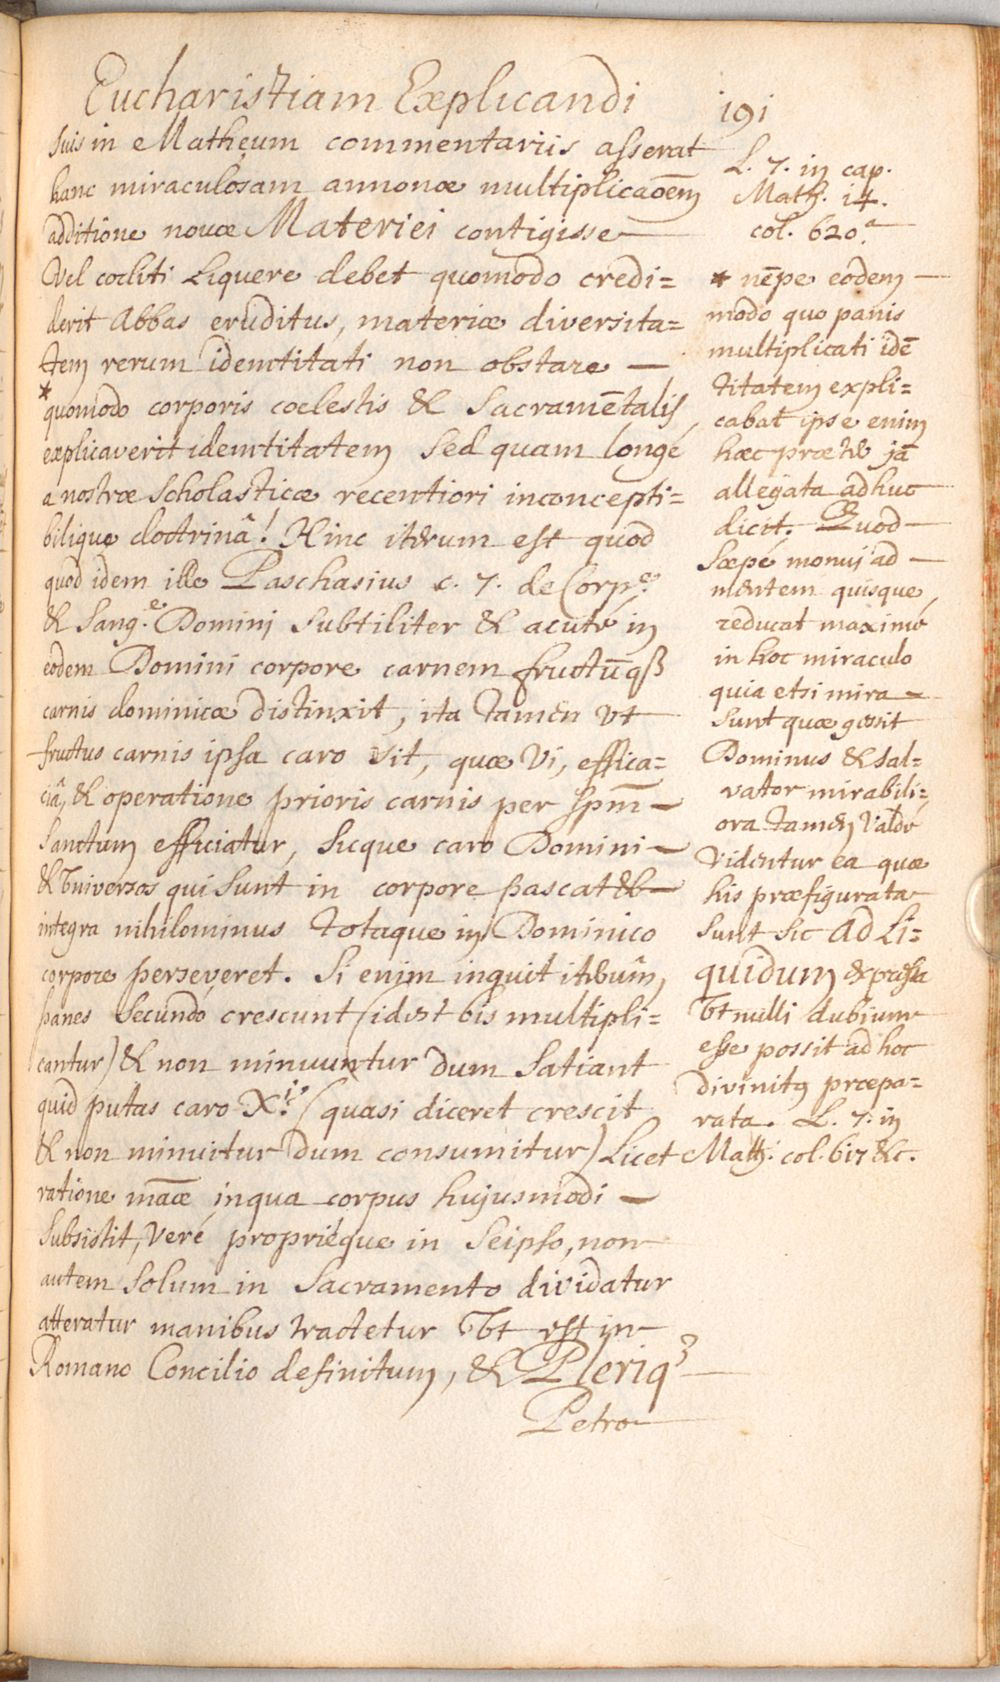 Eucharistiam Explicandi
191
suis in Matheum commentariis asserat
hanc miraculosam annonæ multiplicaõem
additione novæ Materiei contigisse
Vel cocliti Liquere debet quomodo credi=
derit Abbas eruditus, materiæ diversita=
tem rerum identitati non obstare —
* quomodo corporis cœlestis & Sacramētalis
explicaverit identitatem Sed quam longé
a nostræ Scholasticæ recentiori inconcepti=
bilique doctrinâ! Hinc iterum est quod
quod idem ille Paschasius c. 7. de Corp.e
& Sang.e Domini Subtiliter & acuté in
eodem Domini corpore carnem fructūqß
carnis dominicæ distinxit, ita tamen Vt
fructus carnis ipsa caro sit, quæ Vi, effica=
ciâ, & operatione prioris carnis per Spm̄ —
Sanctum efficiatur, Sicque caro Domini —
& Universos qui Sunt in corpore pascat &
integra nihilominus totaque in Dominico
corpore perseveret. Si enim inquit iterum,
panes Secundó crescunt (id est bis multipli=
cantur) & non minuuntur dum Satiant
quid putas caro Xi? (quasi diceret crescit
& non minuitur dum consumitur) Licet
ratione māæ in qua corpus hujusmodi —
Subsistit, Veré propriéque in Seipso, non
autem Solum in Sacramento dividatur
atteratur manibus tractetur Ut est in
Romano Concilio definitum, & Pleriq3
Petro
L. 7. in cap.
Math. 14.
col. 620.a
* nēpe eodem —
modo quo panis
multiplicati idē
titatem expli=
cabat ipse enim
hæc præter jā
allegata adhuc
dicit. Quod —
Sæpé monui ad —
mentem quisque
reducat maximé
in hoc miraculo
quia etsi mira —
Sunt quæ gessit
Dominus & Sal=
vator mirabili=
ora tamen Valde
Videntur ea quæ
his præfigurata
Sunt Sic Ad Li=
quidum expressa
Ut nulli dubium
esse possit ad hoc
divinitq præpa=
rata. L. 7. in
Math. col. 617 &c.